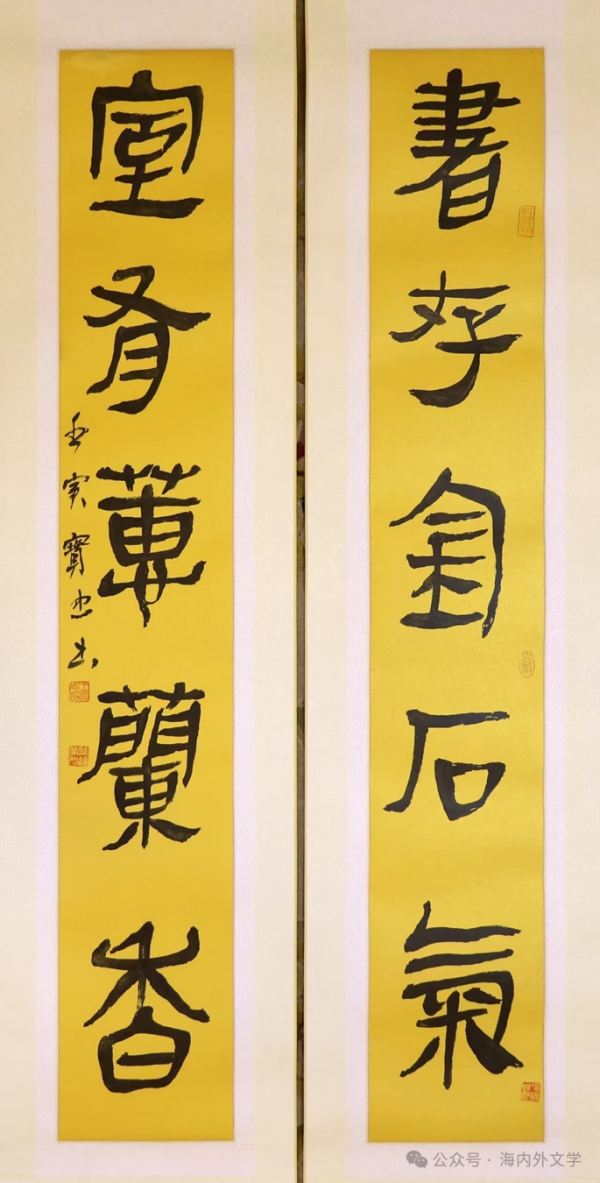 書存金石氣
室有蕙蘭香
壬寅寶忠书
公众号 · 海内外文学